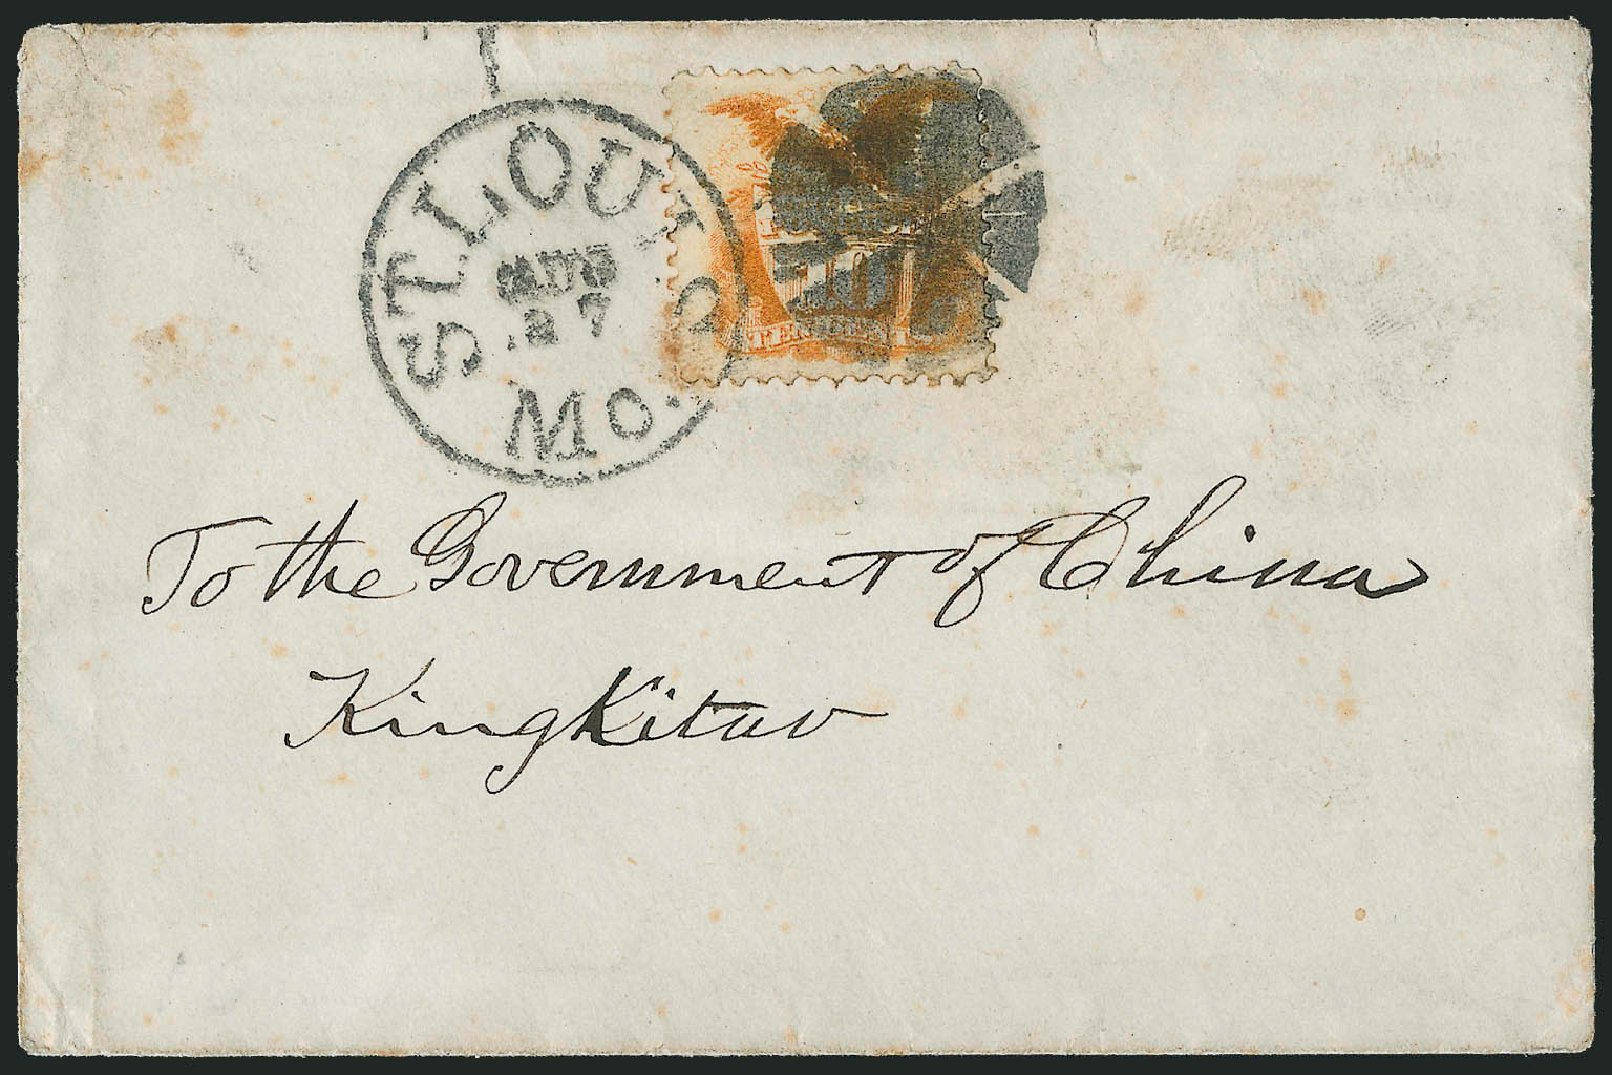 ST. LOUIS
AUG
27
Mo.
10
TEN
To the Government of China
KingKitao